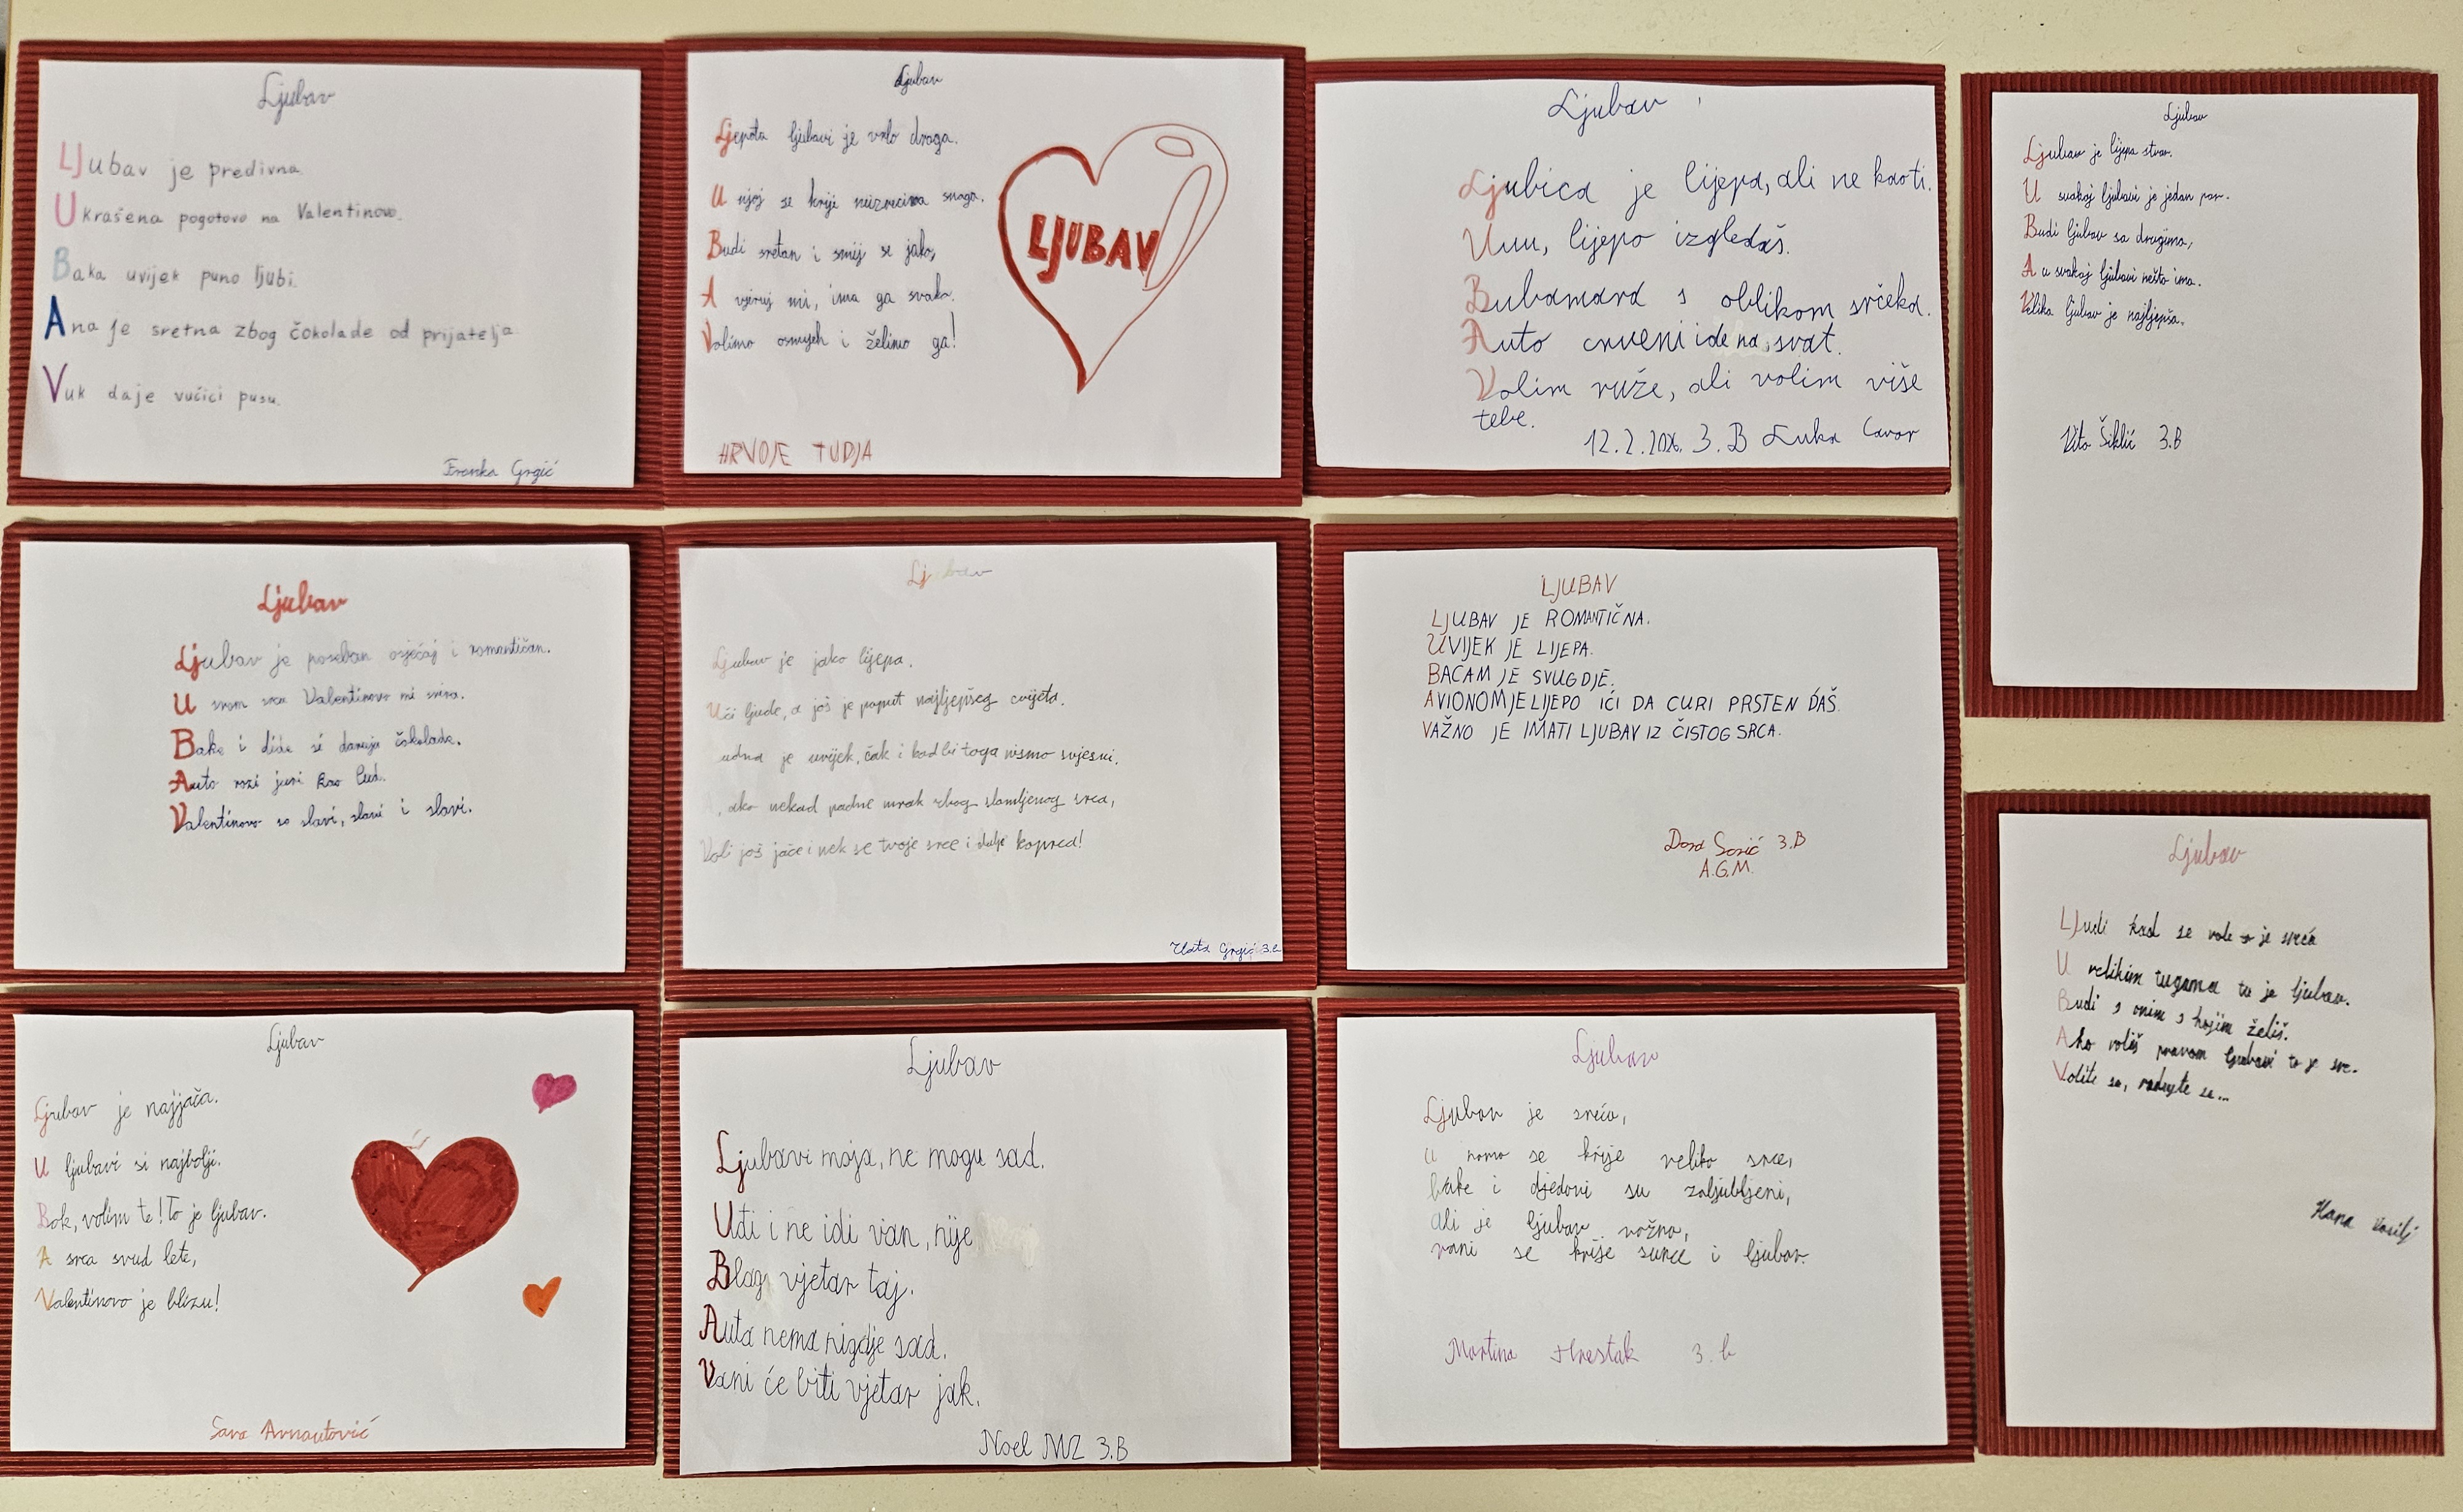 Ljubav
LJubav je predivna.
Ukrašena pogotovo na Valentinovo.
Baka uvijek puno ljubi.
Ana je sretna zbog čokolade od prijatelja.
Vuk daje vučici pusu.
Franka Grgić
Ljubav
Ljepota ljubavi je vrlo draga.
U njoj se krije neizreciva snaga.
Budi sretan i smij se jako,
A vjeruj mi, ima ga svako.
Volimo osmijeh i želimo ga!
LJUBAV
HRVOJE TUDJA
Ljubav
Ljubica je lijepa, ali ne kasti.
Uuu, lijepo izgledaš.
Bubamara s oblikom srčeka.
Auto crveni ide na svat.
Volim ruže, ali volim više
tebe.
12.2.2026. 3.B Luka Cavor
Ljubav
Ljubav je lijepa stvar.
U svakoj ljubavi je jedan par.
Budi ljubav sa drugima,
A u svakoj ljubavi nešto ima.
Velika ljubav je najljepša.
Vito Šiklić 3.B
Ljubav
Ljubav je poseban osjećaj i romantičan.
U srcu Valentinovo mi svira.
Bake i dide si daruju čokolade.
Auto rozi juri kao lud.
Valentinovo se slavi, slavi i slavi.
Ljubav
Ljubav je jako lijepa.
Uči ljude, a još je poput najljepšeg cvijeta.
udna je uvijek, čak i kad bi toga nismo svjesni,
, ako nekad padne mrak zbog slomljenog srca,
Voli još jače i nek se tvoje srce i dalje kopred!
Zlata Grgić 3.b
LJUBAV
LJUBAV JE ROMANTIČNA.
UVIJEK JE LIJEPA.
BACAM JE SVUGDJE.
AVIONOM JE LIJEPO IĆI DA CURI PRSTEN DAŠ.
VAŽNO JE IMATI LJUBAV IZ ČISTOG SRCA.
Dora Sosić 3.B
A.G.M.
Ljubav
LJudi kad se vole to je sreća
U velikim tugama tu je ljubav.
Budi s onim s kojim želiš.
Ako voliš pravom ljubavi to je sve.
Volite se, radujte se...
Hana Vasilj
Ljubav
Ljubav je najjača.
U ljubavi si najbolji.
Bok, volim te! To je ljubav.
A srca svud lete,
Valentinovo je blizu!
Sara Arnautović
Ljubav
Ljubavi moja, ne mogu sad.
Uđi i ne idi van, nije
Blag vjetar taj.
Auta nema nigdje sad.
Vani će biti vjetar jak.
Noel MZ 3.B
Ljubav
Ljubav je sreća,
u nama se krije veliko srce,
bake i djedovi su zaljubljeni,
ali je ljubav važna,
vani se krije sunce i ljubav.
Martina Hrestak 3.b